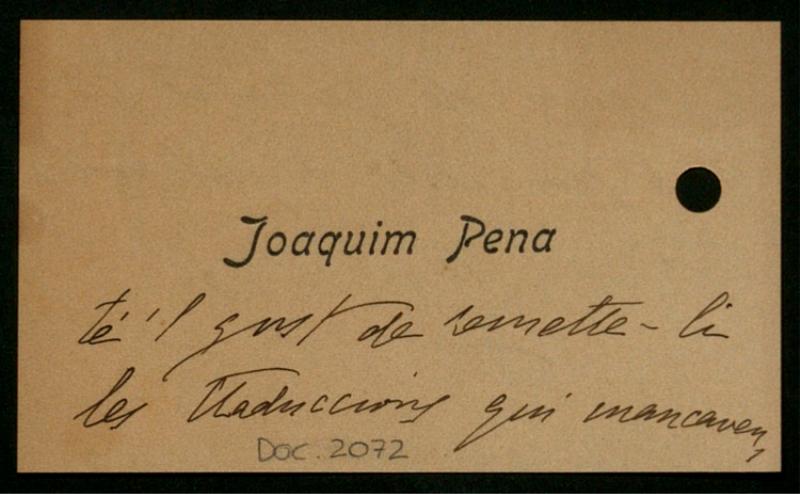 Joaquim Pena
té'l gust de remette-li
les traduccions qui mancaven,
Doc. 2072